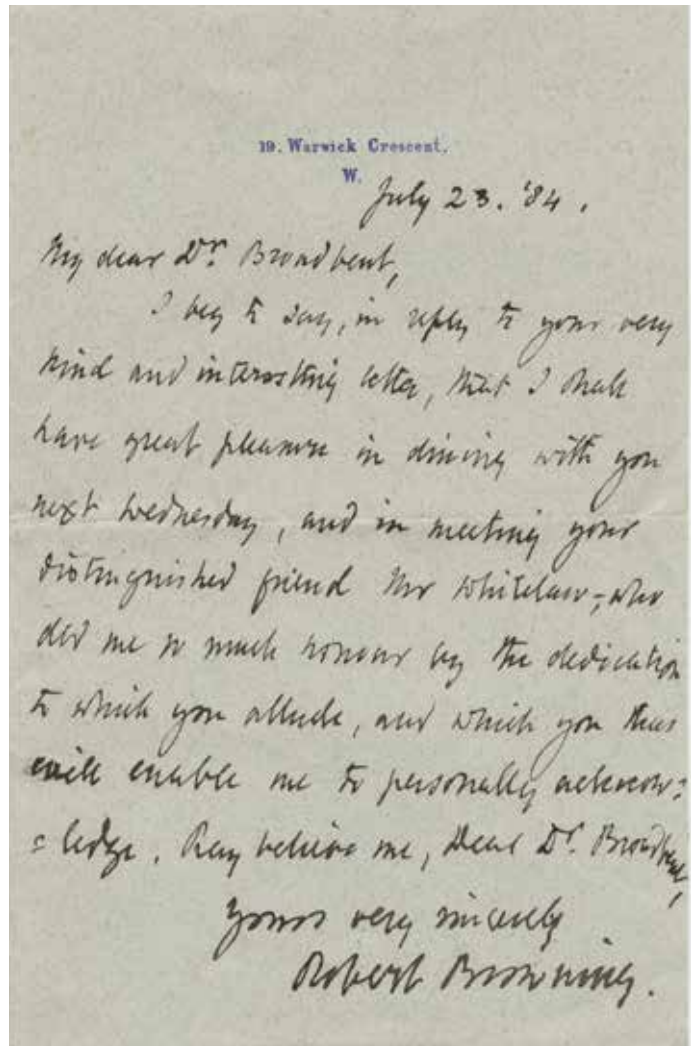 19. Warwick Crescent.
W.
July 23. '84.
My dear Dr. Broadbent,
I beg to say, in reply to your very
kind and interesting letter, that I shall
have great pleasure in dining with you
next Wednesday, and in meeting your
distinguished friend Mr Whitelaw, - who
did me so much honour by the dedication
to which you allude, and which you thus
will enable me to personally acknow=
=ledge. Pray believe me, Dear Dr. Broadbent,
Yours very sincerely
Robert Browning.